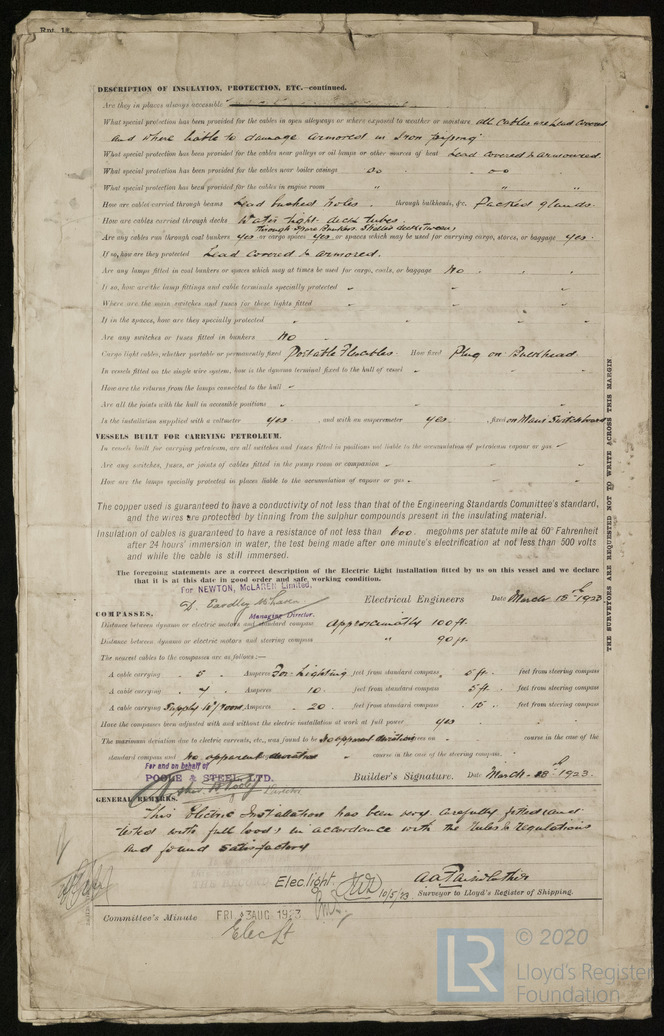 Rpt. 1
DESCRIPTION OF INSULATION, PROTECTION, ETC.—continued.
Are they in places always accessible
What special protection has been provided for the cables in open alleyways or where exposed to weather or moisture all cables are Lead Covered
and where liable to damage armored in Iron piping
What special protection has been provided for the cables near galleys or oil lamps or other sources of heat Lead covered & armoured
What special protection has been provided for the cables near boiler casings do
What special protection has been provided for the cables in engine room " " "
How are cables carried through beams Lead bushed holes. through bulkheads, &c. Packed glands.
How are cables carried through decks Water tight deck tubes.
through Spare Bunkers Shelter deck & Tween
Are any cables run through coal bunkers yes or cargo spaces yes or spaces which may be used for carrying cargo, stores, or baggage yes.
If so, how are they protected Lead Covered & armored.
Are any lamps fitted in coal bunkers or spaces which may at times be used for cargo, coals, or baggage No
If so, how are the lamp fittings and cable terminals specially protected
Where are the main switches and fuses for these lights fitted
If in the spaces, how are they specially protected
Are any switches or fuses fitted in bunkers No
Cargo light cables, whether portable or permanently fixed Portable Flexibles. How fixed Plug on Bulkhead
In vessels fitted on the single wire system, how is the dynamo terminal fixed to the hull of vessel
How are the returns from the lamps connected to the hull
Are all the joints with the hull in accessible positions
Is the installation supplied with a voltmeter yes , and with an amperemeter yes , fixed on Main Switchboard
VESSELS BUILT FOR CARRYING PETROLEUM.
In vessels built for carrying petroleum, are all switches and fuses fitted in positions not liable to the accumulation of petroleum vapour or gas
Are any switches, fuses, or joints of cables fitted in the pump room or companion
How are the lamps specially protected in places liable to the accumulation of vapour or gas
The copper used is guaranteed to have a conductivity of not less than that of the Engineering Standards Committee's standard,
and the wires are protected by tinning from the sulphur compounds present in the insulating material.
Insulation of cables is guaranteed to have a resistance of not less than 600 megohms per statute mile at 60° Fahrenheit
after 24 hours' immersion in water, the test being made after one minute's electrification at not less than 500 volts
and while the cable is still immersed.
The foregoing statements are a correct description of the Electric Light installation fitted by us on this vessel and we declare
that it is at this date in good order and safe working condition.
For NEWTON, McLAREN Limited.
Eardley McLaren Electrical Engineers Date March 18th 1923
Managing Director.
COMPASSES.
Distance between dynamo or electric motors and standard compass Approximately 100 ft.
Distance between dynamo or electric motors and steering compass " 90 ft.
The nearest cables to the compasses are as follows:—
A cable carrying 5 Amperes For Lighting feet from standard compass 5 ft. feet from steering compass
A cable carrying 4 Amperes 10 feet from standard compass 5 ft. feet from steering compass
A cable carrying Supply W/room Amperes 20 feet from standard compass 15 feet from steering compass
Have the compasses been adjusted with and without the electric installation at work at full power yes
The maximum deviation due to electric currents, etc., was found to be No apparent deviation degrees on course in the case of the
standard compass and No apparent deviation course in the case of the steering compass.
For and on behalf of
POOLE & STEEL LTD. Builder's Signature. Date March 18th 1923.
GENERAL REMARKS.
This Electric Installation has been very carefully fitted and
tested with full load; in accordance with the Rules & Regulations
and found satisfactory
Elec. light. 10/5/23
Surveyor to Lloyd's Register of Shipping.
Committee's Minute FRI. 3 AUG 1923
Elec Lt
THE SURVEYORS ARE REQUESTED NOT TO WRITE ACROSS THIS MARGIN
LR
© 2020
Lloyd's Register
Foundation